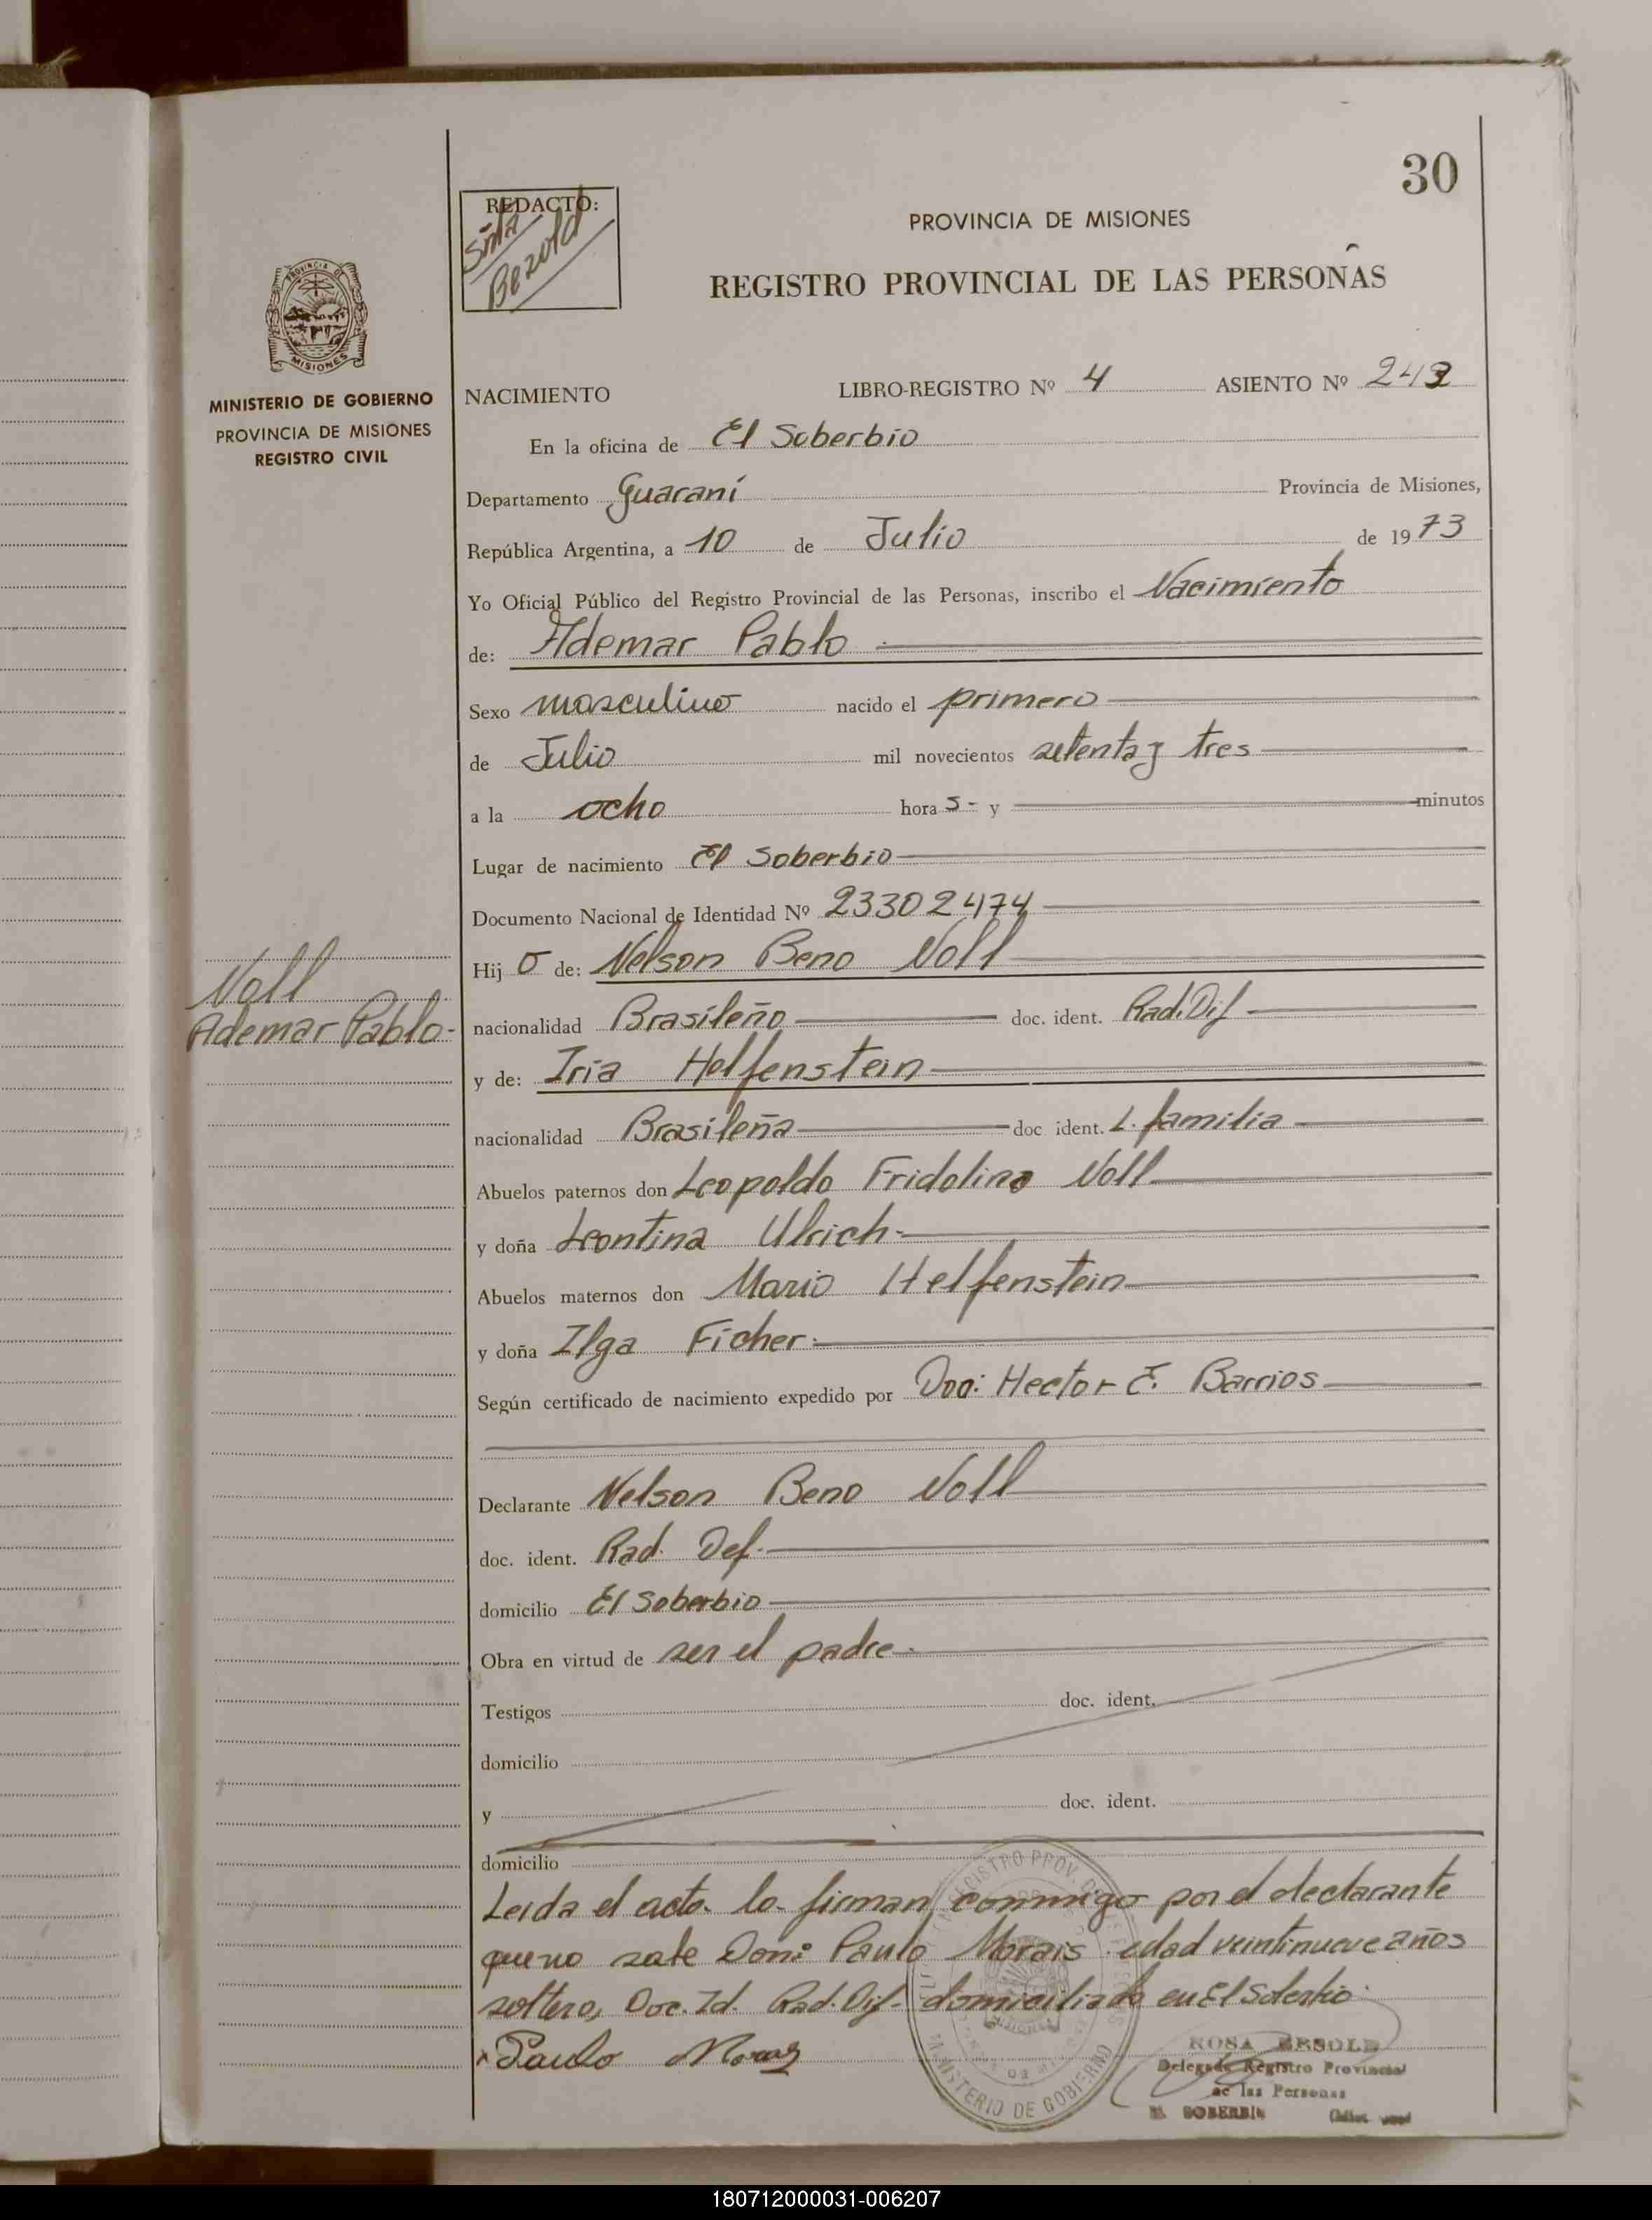 30
REDACTO:
Srta
Bezold
PROVINCIA DE MISIONES
REGISTRO PROVINCIAL DE LAS PERSONAS
PROVINCIA DE
MISIONES
MINISTERIO DE GOBIERNO
PROVINCIA DE MISIONES
REGISTRO CIVIL
NACIMIENTO LIBRO-REGISTRO Nº 4 ASIENTO Nº
En la oficina de El Soberbio
Departamento Guaraní Provincia de Misiones,
República Argentina, a 10 de Julio de 1973
Yo Oficial Público del Registro Provincial de las Personas, inscribo el Nacimiento
de: Ademar Pablo
Sexo masculino nacido el primero
de Julio mil novecientos setenta y tres
a la ocho hora s- y minutos
Lugar de nacimiento El Soberbio
Documento Nacional de Identidad Nº 23302474
Hij o de: Nelson Beno Noll
Noll
Ademar Pablo-
nacionalidad Brasileño doc. ident. Rad. Dif
y de: Iria Helfenstein
nacionalidad Brasileña doc ident. L. familia
Abuelos paternos don Leopoldo Fridolino Noll
y doña Leontina Ulrich-
Abuelos maternos don Mario Helfenstein
y doña Ilga Ficher-
Según certificado de nacimiento expedido por Hector E. Barrios
Declarante Nelson Beno Noll
doc. ident. Rad. Def.
domicilio El Soberbio
Obra en virtud de ser el padre-
Testigos doc. ident.
domicilio
y doc. ident.
domicilio
Leida el acta lo firman conmigo por el declarante
que no sabe Don: Paulo Morais edad veintinueve años
soltero, Doc. Id. Rad. Dif- domiciliado en El Soberbio
Paulo
REGISTRO PROV. DE
MINISTERIO DE GOBIERNO
ROSA
Delegada Registro Provincial
de las Personas
EL SOBERBIO
180712000031-006207